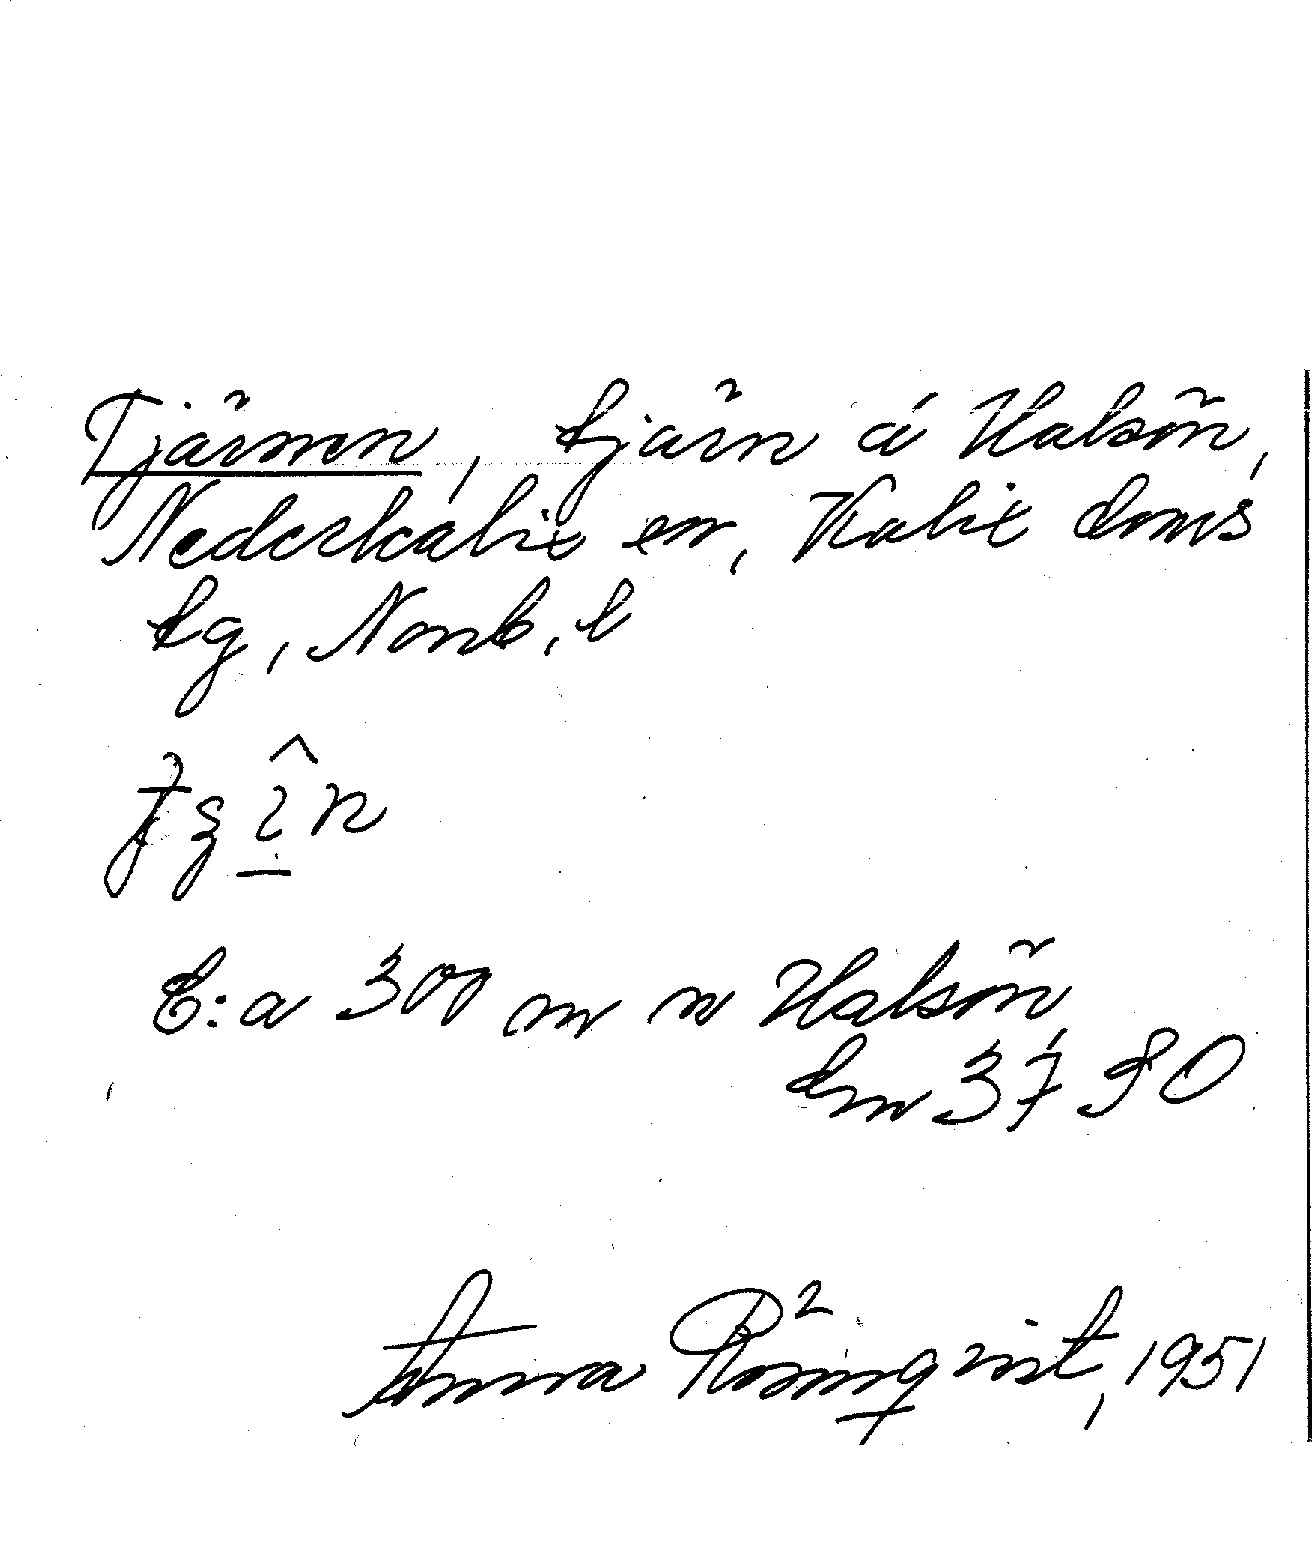 Tjärnen, tjärn å Halsön,
Nederkalix sn, Kalix doms
tg, Norrb. l
C:a 300 m n Halsön,
Anna Rosinqvist, 1951